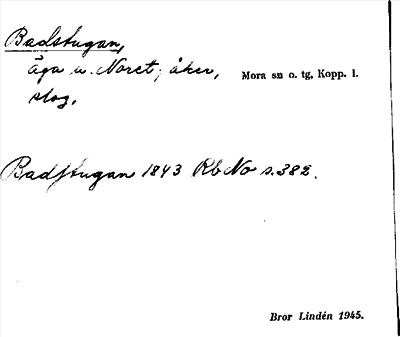 Badstugan,
äga u. Noret; åker, Mora sn o. tg, Kopp. l.
slog.
Badstugan 1843 Rb No s. 382.
Bror Lindén 1945.